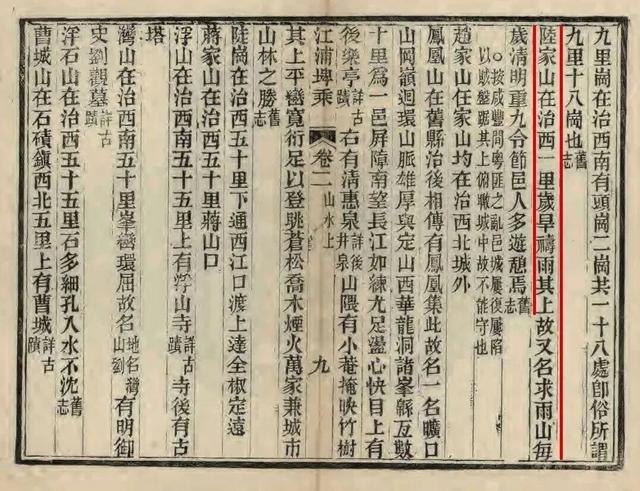 九里崗在治西南有頭崗二崗其一十八處卽俗所謂
九里十八崗也舊志
陸家山在治西一里歲旱禱雨其上故又名求雨山每
歲清明重九令節邑人多遊憩焉舊志
○按咸豐間粵匪之亂邑城屢復屢陷
以賊盤踞其上俯瞰城中故不能守也
趙家山任家山均在治西北城外
鳳凰山在舊縣治後相傳有鳳凰集此故名一名曠口
山岡嶺迴環山脈雄厚與定山西華龍洞諸峯縣亙數
十里爲一邑屏障南望長江如練尤足盪心快目上有
後樂亭詳古蹟右有清惠泉詳後井泉山隈有小菴掩映竹樹
江浦埤乘
卷二 山水上
九
其上平巒寬衍足以登眺蒼松喬木煙火萬家兼城市
山林之勝舊志
陡崗在治西五十里下通西江口渡上達全椒定遠
蔣家山在治西五十里蔣山口
浮山在治西南五十五里上有浮山寺詳古蹟寺後有古
塔
灣山在治西南五十里峯巒環屈故名地名灣山劉有明御
史劉觀墓詳古蹟
浮石山在治西五十五里石多細孔入水不沈舊志
曹城山在石磧鎮西北五里上有曹城詳古蹟